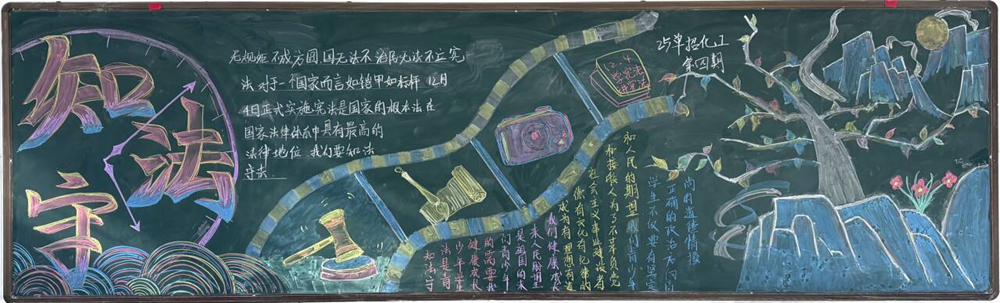 知法
守
无规矩不成方圆国无法不治民无法不立宪
法对于一个国家而言如铠甲如标杆12月
4日正式实施宪法是国家的根本法在
国家法律体系中具有最高的
法律地位我们要知法
守法
12.4
学宪法
25单招化工
第四期
尚的道德情操
正确的政治方向
学生不仅要有坚定
和人民的期望我们青少年
和接班人为了不辜负党
社会主义事业建设者
你有文化有纪律的
成为有理想有道
我们健康成
来人民盼望
是祖国的未
们青少年
的需要我
健康成长
少年学生
法是青
知法守